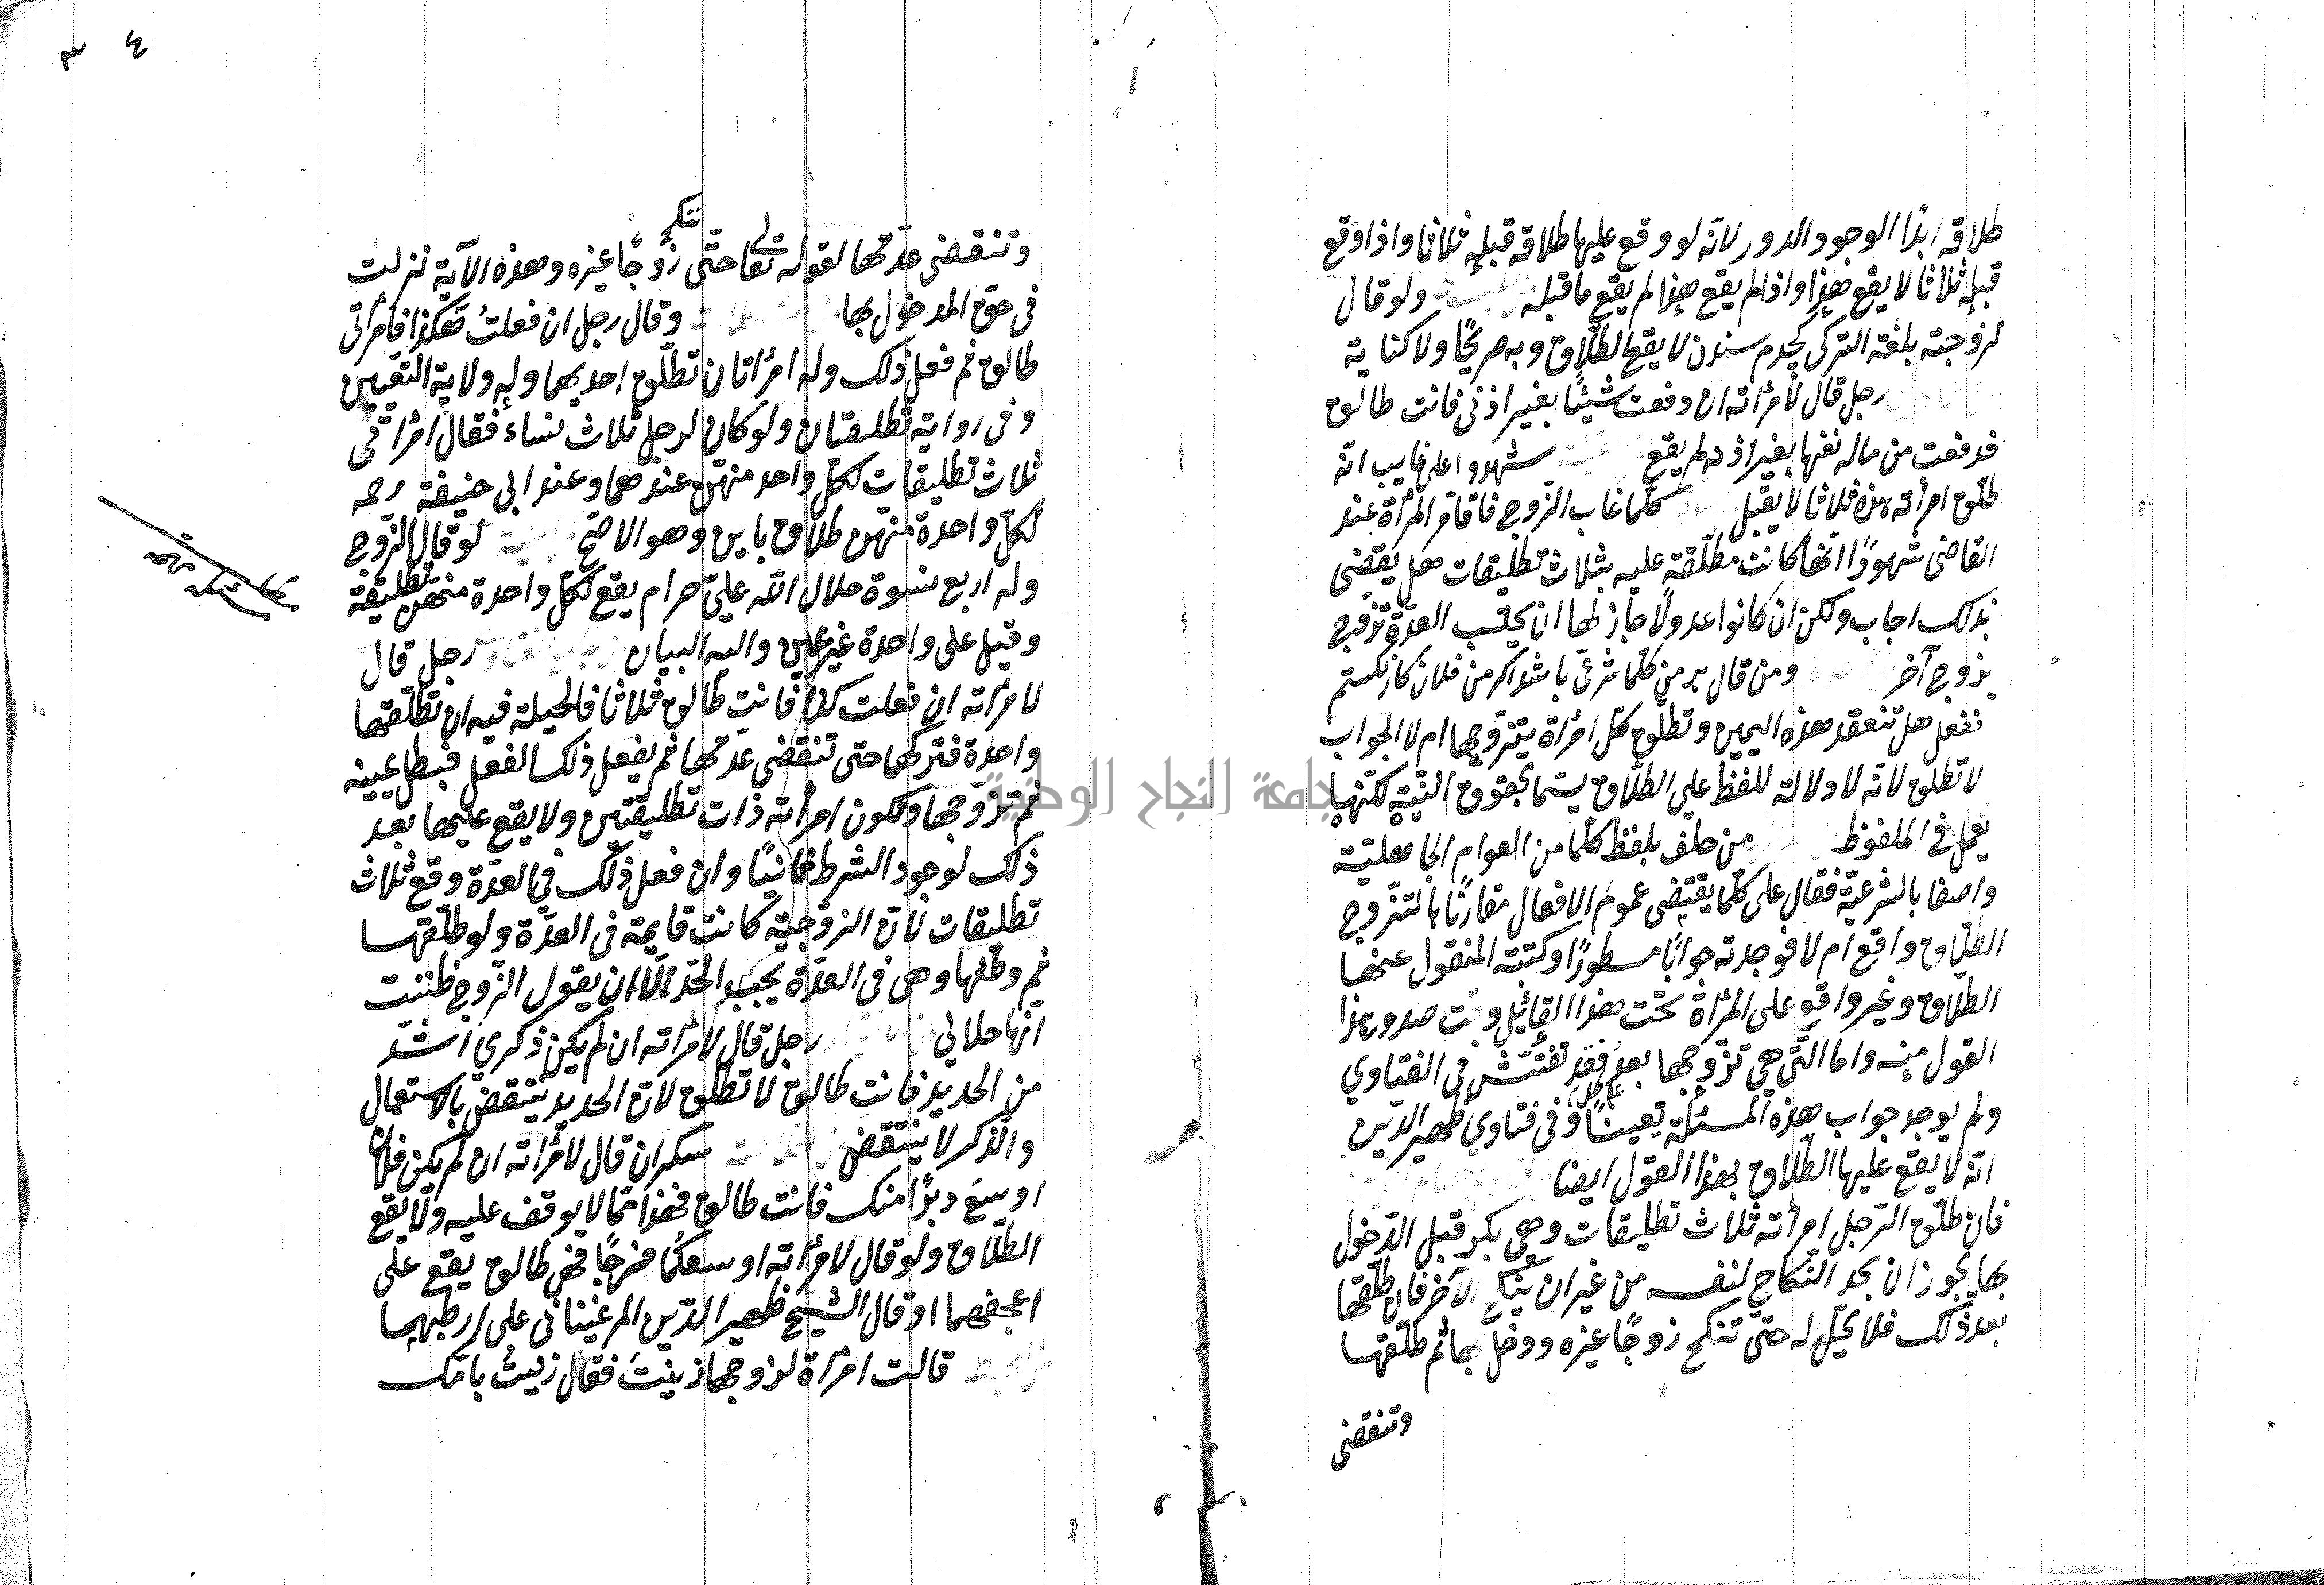 طلاقه ابدًا الوجود الدور لانه لو وقع عليها طلاقه قبله ثلاثا واذا وقع
قبله ثلاثا لا يقع هذا واذا لم يقع هذا لم يقع ما قبله ولو قال
لزوجته بلغته التركى سندن لا يقع الطلاق وبه صريحًا ولا كناية
رجل قال لامرأته ان دفعت شيئًا بغير اذنى فانت طالق
فدفعت من ماله بغير اذنه لم يقع شهدوا على غايب انه
طلق امرأته هذه ثلاثا لا يقبل كلما غاب الزوج فاقام المرأة عند
القاضى شهودًا انها كانت مطلقة عليه بثلاث تطليقات هل يقضى
بذلك اجاب ولكن ان كانوا عدولًا جاز لها ان العدة تزوج
بزوج آخر ومن قال بر من كلما شرعى باشد اكر من فلان كار
ففعل هل تنعقد هذه اليمين وتطلق كل امرأة يتزوجها ام لا الجواب
لا تطلق لانه لا دلالة للفظ على الطلاق النية لكنها
يعمل فى الملفوظ من حلف بلفظ كلما من العوام الجاهلية
واصفا بالشرعية فقال على كلما يقتضى عموم الافعال مقارنًا بالتزوج
الطلاق واقع ام لا فوجدته جوابًا مسطورًا وكتبته المنقول عنها
الطلاق وغير واقع على المرأة تحت هذا القائل وقت صدور هذا
القول منه واما التى هى تزوجها بعد فقد تفتش فى الفتاوي
ولم يوجد جواب هذه المسئلة تعينًا وفى فتاوي ظهير الدين
انه لا يقع عليها الطلاق بهذا القول ايضا
فان طلق الرجل امرأته ثلاث تطليقات وهى بكر قبل الدخول
بها يجوز ان يجد النكاح لنفسه من غير ان ينكح لآخر فان طلقها
بعد ذلك فلا يحل له حتى تنكح زوجًا غيره ودخل بها ثم طلقها
وتنقضى
٣٤
وتنقضى عدتها لقوله تعالى حتى تنكح زوجًا غيره وهذه الآية نزلت
فى حق المدخول بها وقال رجل ان فعلت هكذا فامرأتى
طالق ثم فعل ذلك وله امرأتان تطلق احديهما وله ولاية التعيين
وفى رواية تطليقتان ولو كان لرجل ثلاث نساء فقال امرأتى
ثلاث تطليقات لكل واحد منهن عندهما وعند ابى حنيفة رحمه
لكل واحدة منهن طلاق باين وهو الاصح لو قال الزوج
وله اربع نسوة حلال الله علىّ حرام يقع لكل واحدة منهن تطليقة
وقيل على واحدة غير عين واليه البيان رجل قال
لامرأته ان فعلت كذا فانت طالق ثلاثا فالحيلة فيه ان تطلقها
واحدة فتركها حتى تنقضى عدتها ثم يفعل ذلك الفعل فبطل يمينه
ثم تزوجها وتكون امرأته ذات تطليقتين ولا يقع عليها بعد
ذلك لوجود الشرط ثانيًا وان فعل ذلك فى العدة وقع ثلاث
تطليقات لان الزوجية كانت قايمة فى العدة ولو طلقها
ثم وطئها وهى فى العدة يجب الحد الا ان يقول الزوج ظننت
انها حلالي رجل قال لامرأته ان لم يكن ذكري اشد
من الحديد فانت طالق لا تطلق لان الحديد ينتقض بالاستعمال
والذكر لا ينتقض سكران قال لامرأته ان لم يكن فلان
اوسع دبرًا منك فانت طالق فهذا مما لا يوقف عليه ولا يقع
الطلاق ولو قال لامرأته اوسعكما فرجًا فهى طالق يقع على
اعجفهما او قال الشيخ ظهير الدين المرغينانى على ارطبهما
قالت امرأة لزوجها زنيتَ فقال زنيتُ بامك
جامعة النجاح الوطنية